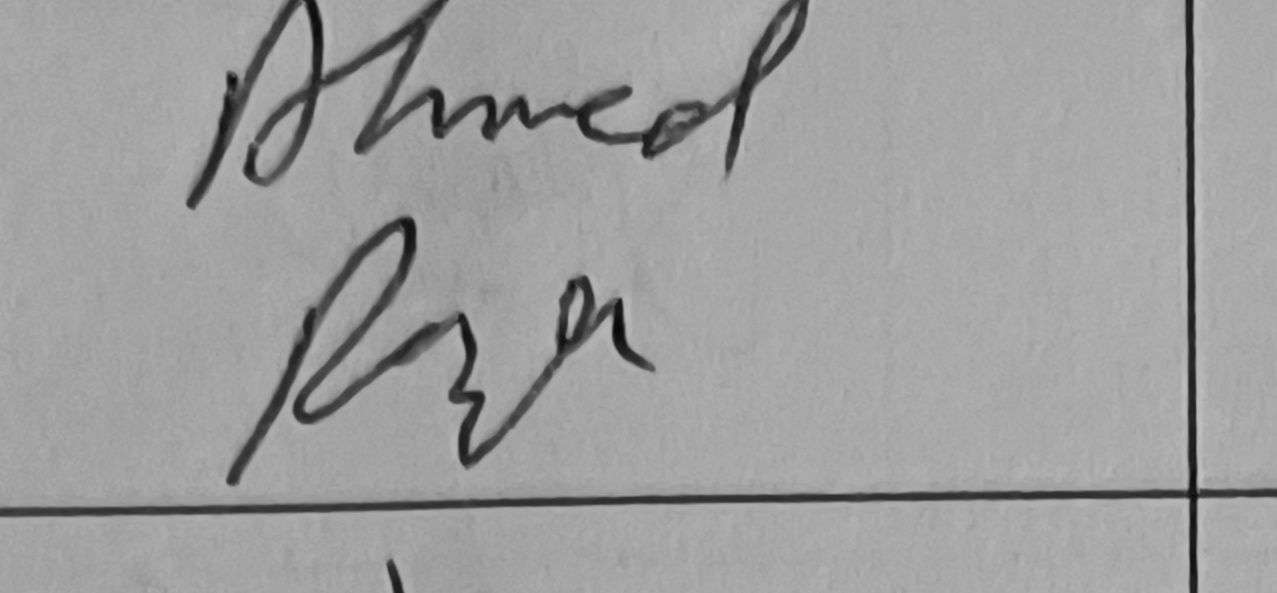 Ahmed
Raza